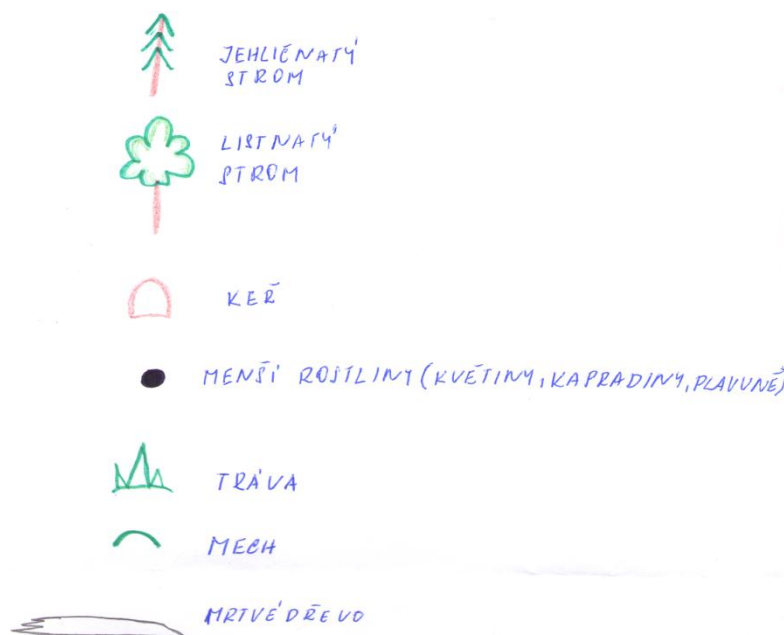 JEHLIČNATÝ
STROM
LISTNATÝ
STROM
KEŘ
MENŠÍ ROSTLINY (KVĚTINY, KAPRADINY, PLAVUNĚ)
TRÁVA
MECH
MRTVÉ DŘEVO